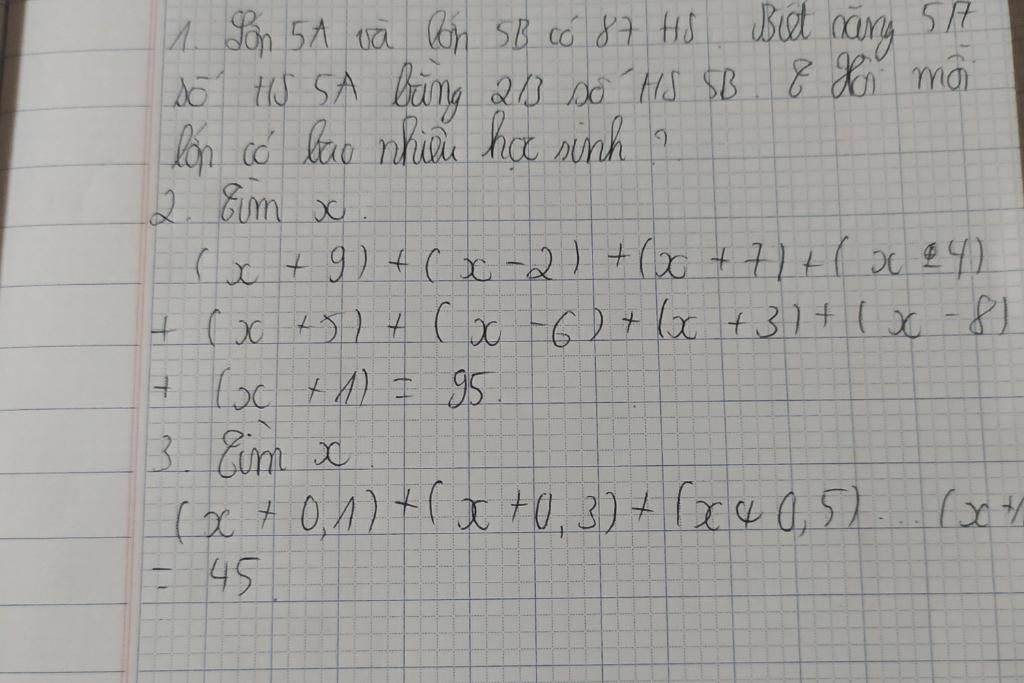 1. Lớp 5A và lớp 5B có 87 HS. Biết rằng 5/7
số HS 5A bằng 2/3 số HS 5B. Hỏi mỗi
lớp có bao nhiêu học sinh ?
2. Tìm x.
(x + 9) + (x - 2) + (x + 7) + (x - 4)
+ (x + 5) + (x - 6) + (x + 3) + (x - 8)
+ (x + 1) = 95.
3. Tìm x
(x + 0,1) + (x + 0,3) + (x + 0,5) ... (x +
= 45.